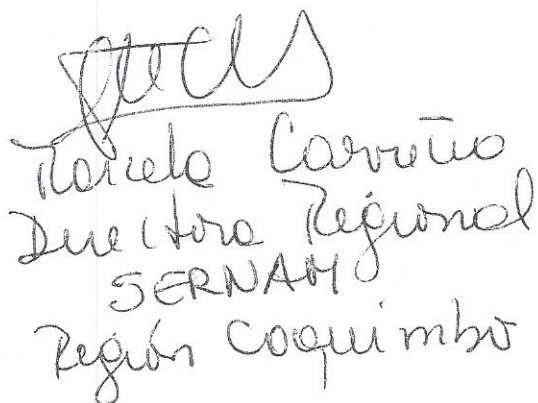 Marcela Carreño
Directora Regional
SERNAM
Región Coquimbo